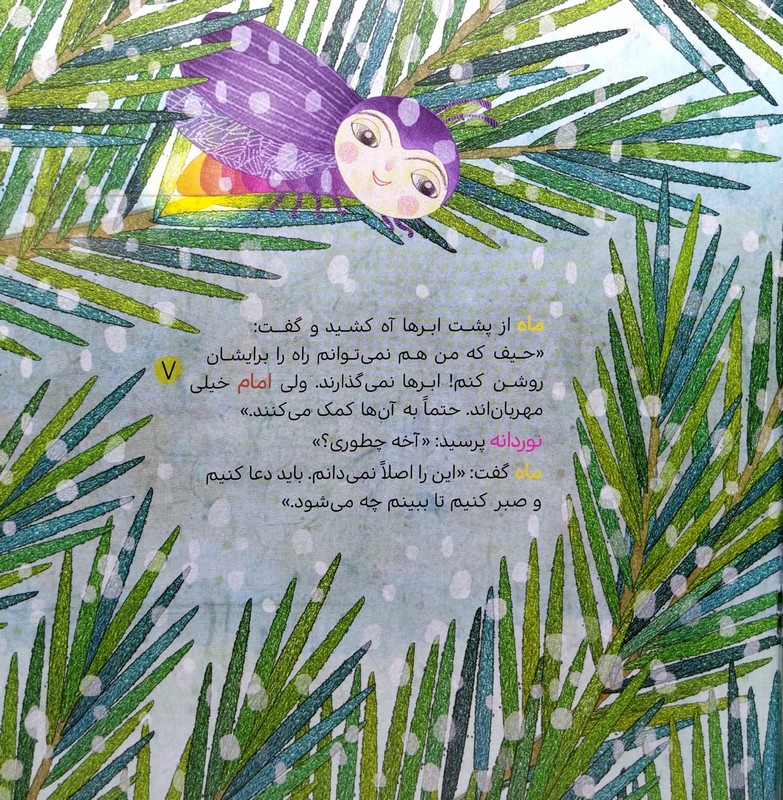 ماه از پشت ابرها آه کشید و گفت:
«حیف که من هم نمی‌توانم راه را برایشان
روشن کنم! ابرها نمی‌گذارند. ولی امام خیلی
مهربان‌اند. حتماً به آن‌ها کمک می‌کنند.»
نوردانه پرسید: «آخه چطوری؟»
ماه گفت: «این را اصلاً نمی‌دانم. باید دعا کنیم
و صبر کنیم تا ببینم چه می‌شود.»
۷